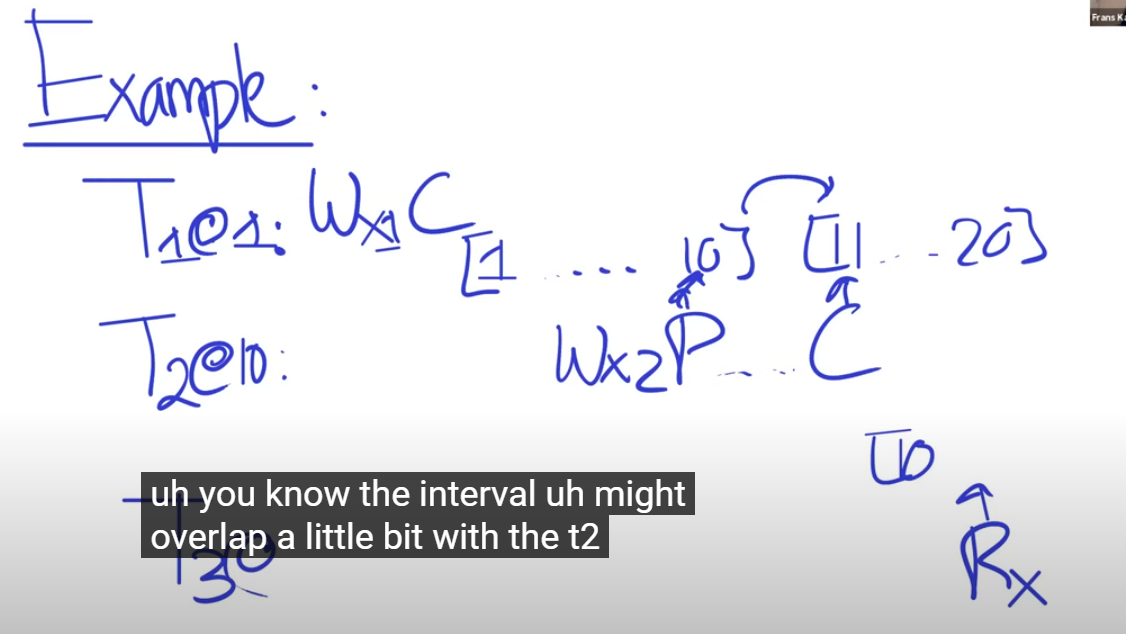 Frans K
Example:
T1@1: Wx1 C [1 .... 10] [11 ... 20]
T2@10: Wx2 P ..... C
[10
uh you know the interval uh might
overlap a little bit with the t2
T3@
Rx